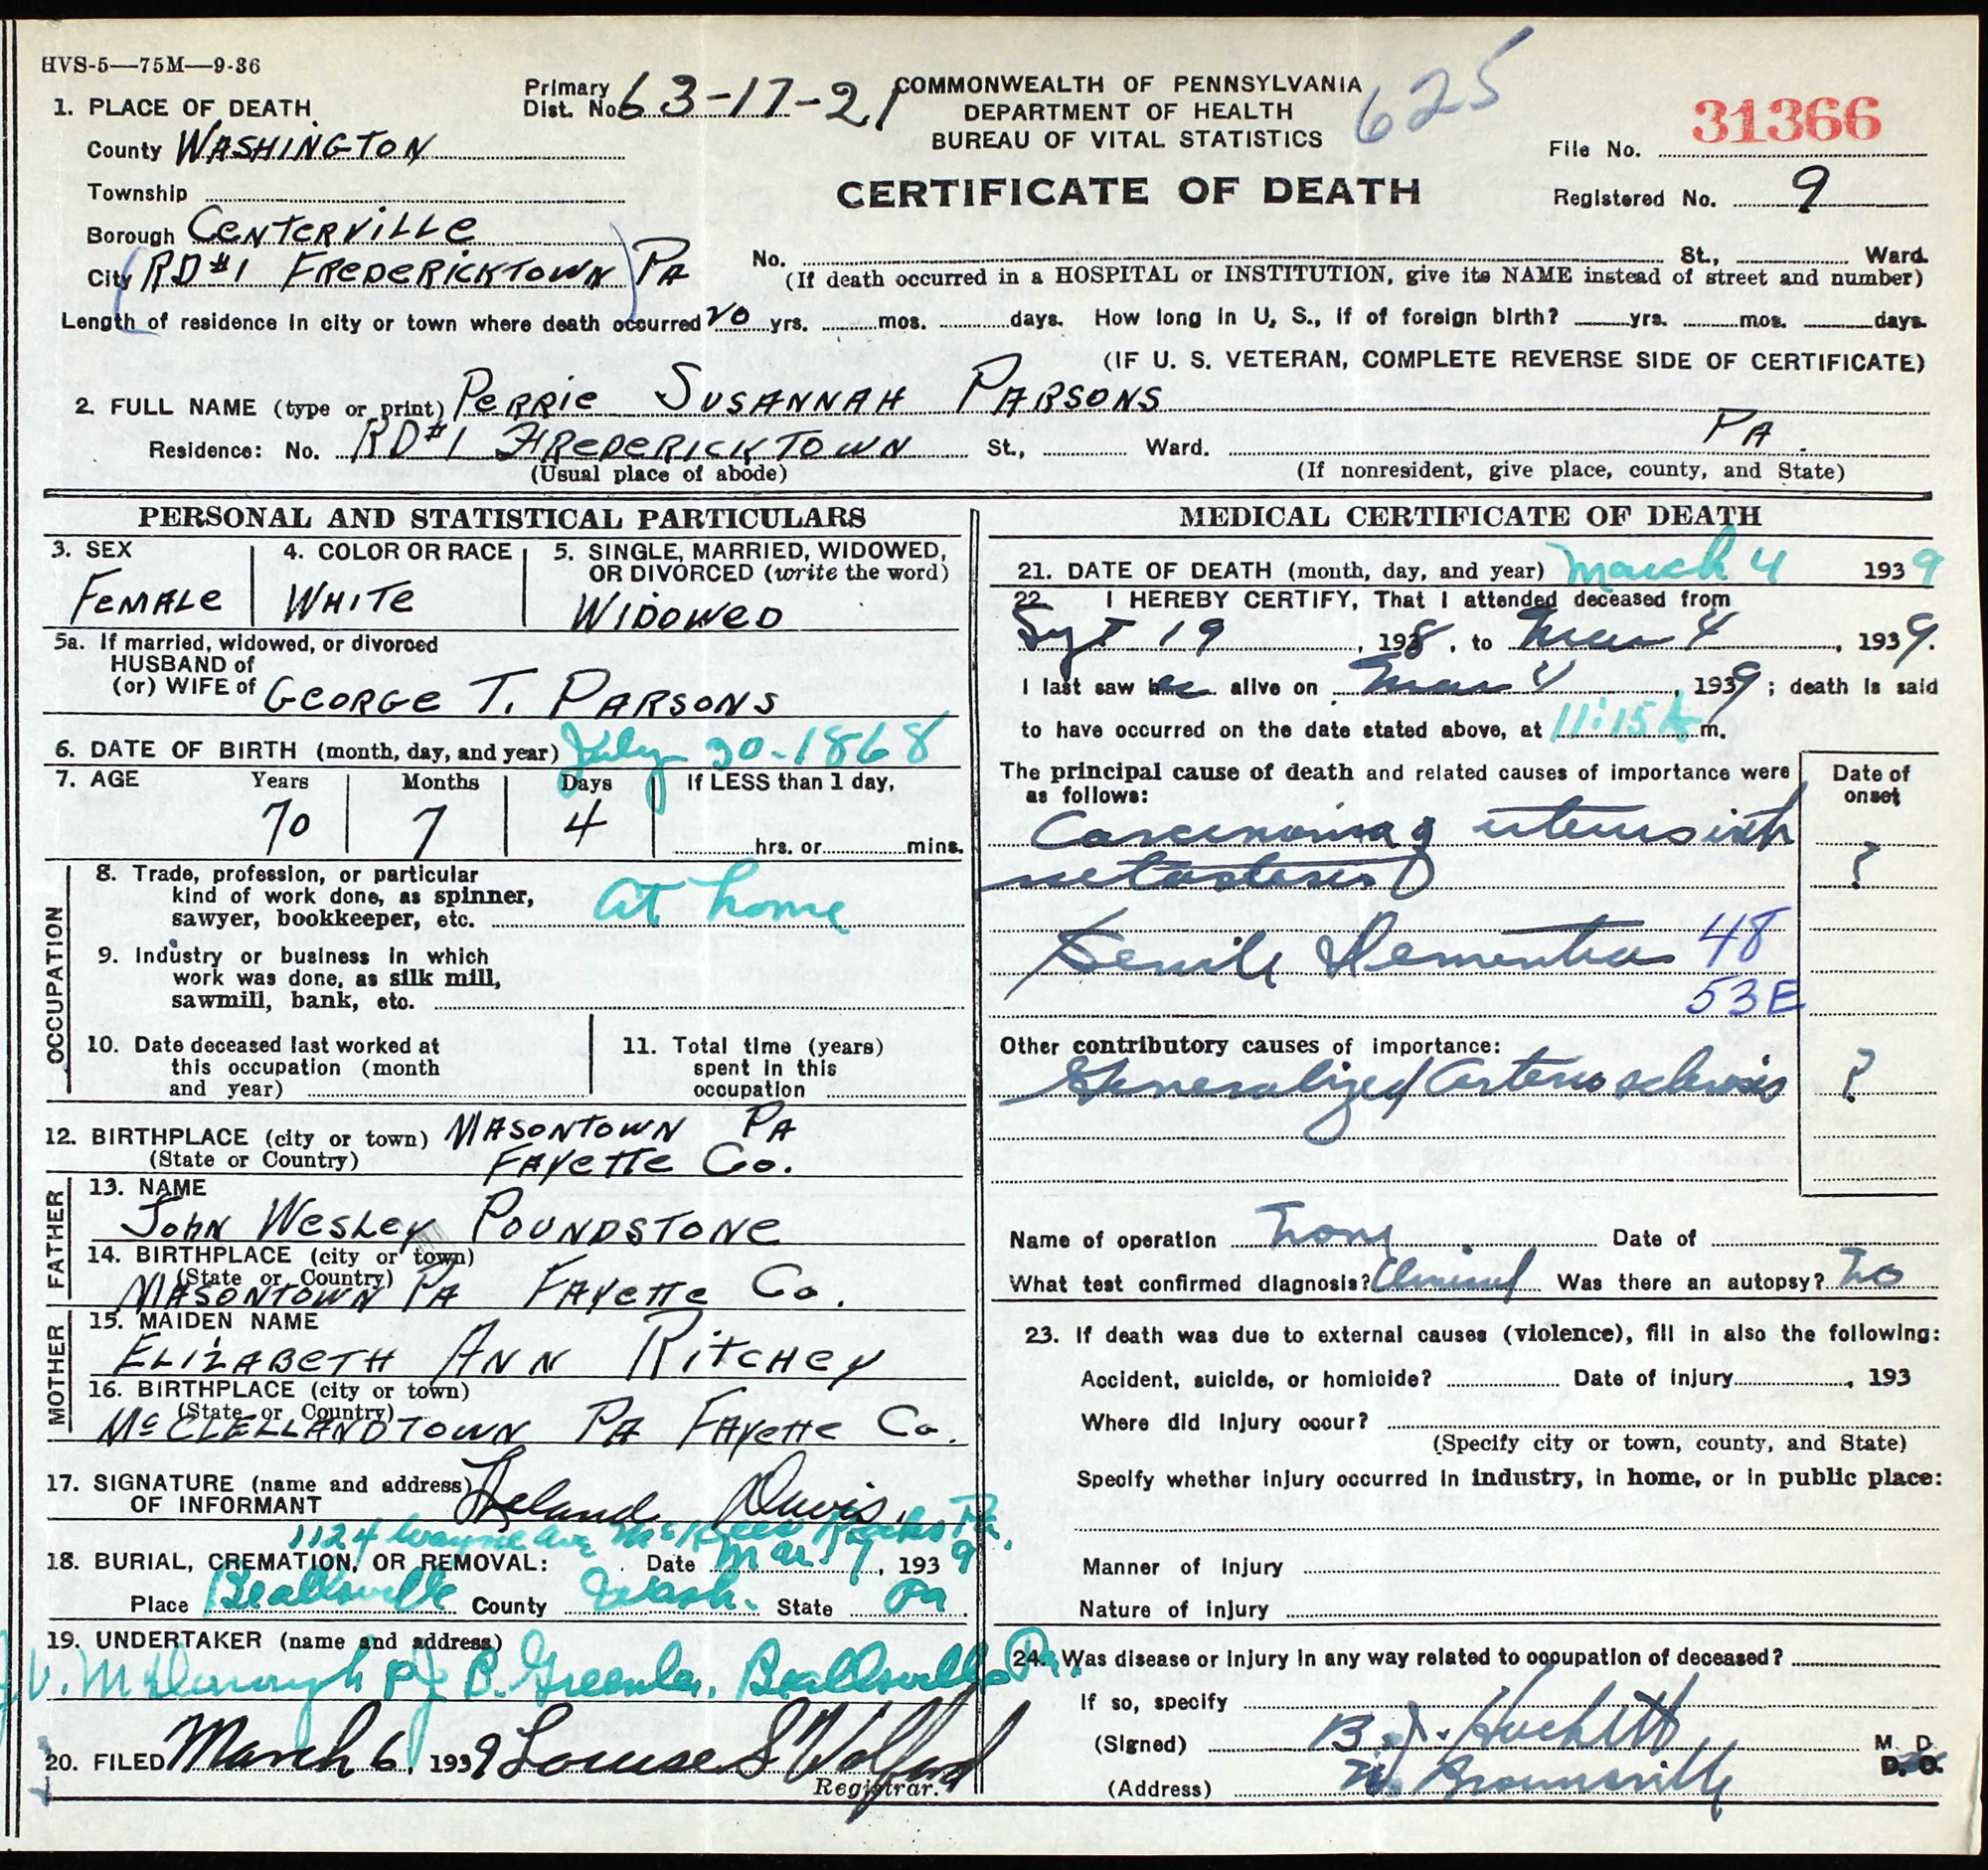 HVS-5—75M—9-36
Primary
Dist. No. 63-17-21
COMMONWEALTH OF PENNSYLVANIA
DEPARTMENT OF HEALTH
BUREAU OF VITAL STATISTICS
625
CERTIFICATE OF DEATH
File No. 31366
Registered No. 9
1. PLACE OF DEATH
County WASHINGTON
Township
Borough CENTERVILLE
City (RD#1 FREDERICKTOWN) PA
No. St., Ward.
(If death occurred in a HOSPITAL or INSTITUTION, give its NAME instead of street and number)
Length of residence in city or town where death occurred 70 yrs. mos. days. How long in U. S., if of foreign birth? yrs. mos. days.
(IF U. S. VETERAN, COMPLETE REVERSE SIDE OF CERTIFICATE)
2. FULL NAME (type or print) PERRIE SUSANNAH PARSONS
Residence: No. RD#1 FREDERICKTOWN St., Ward. PA.
(Usual place of abode) (If nonresident, give place, county, and State)
PERSONAL AND STATISTICAL PARTICULARS
3. SEX
FEMALE
4. COLOR OR RACE
WHITE
5. SINGLE, MARRIED, WIDOWED,
OR DIVORCED (write the word)
WIDOWED
5a. If married, widowed, or divorced
HUSBAND of
(or) WIFE of GEORGE T. PARSONS
6. DATE OF BIRTH (month, day, and year) July 30-1868
7. AGE Years Months Days If LESS than 1 day,
70 7 4 hrs. or mins.
OCCUPATION
8. Trade, profession, or particular
kind of work done, as spinner,
sawyer, bookkeeper, etc. at home
9. Industry or business in which
work was done, as silk mill,
sawmill, bank, etc.
10. Date deceased last worked at
this occupation (month
and year)
11. Total time (years)
spent in this
occupation
12. BIRTHPLACE (city or town) MASONTOWN PA
(State or Country) FAYETTE CO.
FATHER
13. NAME
JOHN WESLEY POUNDSTONE
14. BIRTHPLACE (city or town)
(State or Country)
MASONTOWN PA FAYETTE CO.
MOTHER
15. MAIDEN NAME
ELIZABETH ANN RITCHEY
16. BIRTHPLACE (city or town)
(State or Country)
McCLELLANDTOWN PA FAYETTE CO.
17. SIGNATURE (name and address)
OF INFORMANT Leland Davis,
1124 Wayne Ave McKees Rocks Pa.
18. BURIAL, CREMATION, OR REMOVAL: Date Mar. 7, 1939
Place Beallsville County Wash. State Pa
19. UNDERTAKER (name and address)
B. Greenlee, Beallsville Pa.
20. FILED March 6, 1939 Louise S
Registrar.
MEDICAL CERTIFICATE OF DEATH
21. DATE OF DEATH (month, day, and year) March 4 1939
22. I HEREBY CERTIFY, That I attended deceased from
Sept 19, 1938, to Mar 4, 1939.
I last saw her alive on Mar 4, 1939; death is said
to have occurred on the date stated above, at 11:15 A m.
The principal cause of death and related causes of importance were
as follows:
Date of
onset
Carcinoma of uterus with
metastasis ?
Senile Dementia 48
53E
Other contributory causes of importance:
Generalized Arteriosclerosis ?
Name of operation none Date of
What test confirmed diagnosis? Clinical Was there an autopsy? no
23. If death was due to external causes (violence), fill in also the following:
Accident, suicide, or homicide? Date of injury , 193
Where did injury occur?
(Specify city or town, county, and State)
Specify whether injury occurred in industry, in home, or in public place:
Manner of injury
Nature of injury
24. Was disease or injury in any way related to occupation of deceased?
If so, specify
(Signed) B. J. Hackett M. D.
D. O.
(Address) W. Brownsville